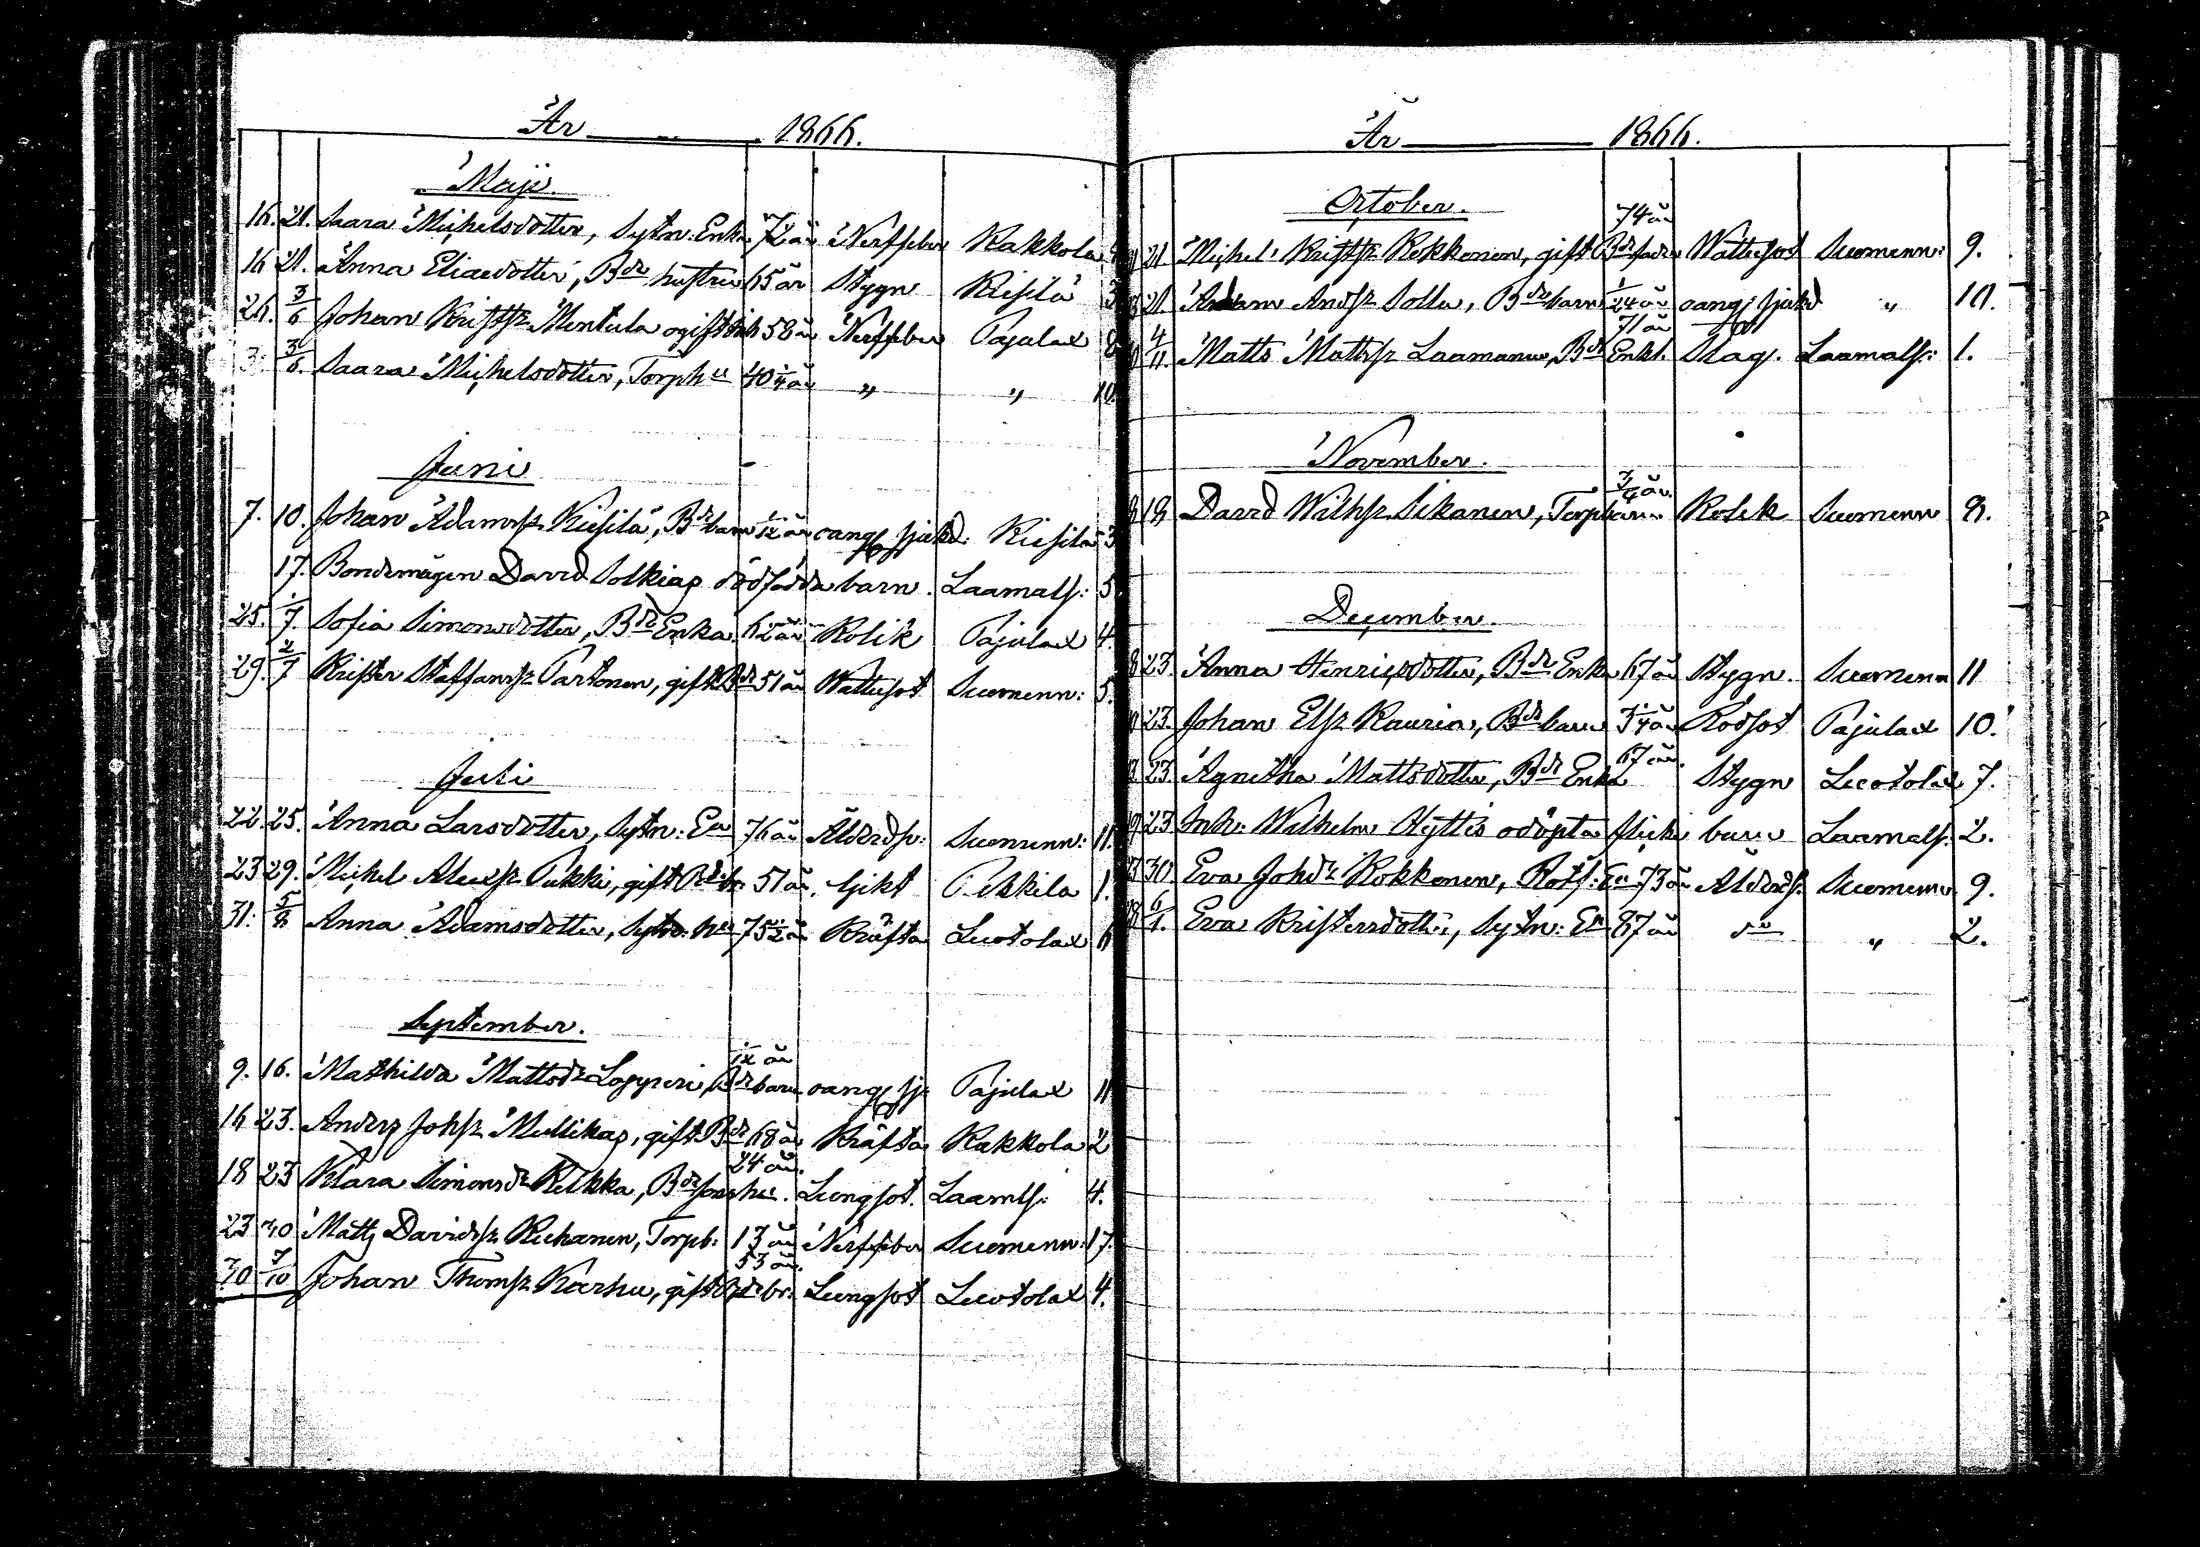 År 1866.
Maji.
16. 21. Saara Michelsdotter, Sytn: Enka 72 år Nerffeber Kakkola
16 21. Anna Eliaedotter, Bde hustru 65 år Stygn Kiesilä 3
26. 3/6 Johan Kristsr Mentula ogift inh 58 år Nerffeber Pajulax 8
3. 3/6. Saara Michelsdotter, Torph u 40 1/4 år " " 10.
Juni
7. 10. Johan Adamsr Kiesilä, Bde barn 1/12 år oang sjukd: Kiesilä 3
17. Bondemågen David Solkias dödfödda barn. Laamals: 5
25. 1/7. Sofia Simonsdotter, Bde Enka 62 år Kolik Pajulax 4.
29. 2/7 Krister Staffansr Partonen, gift Bde 51 år Wattusot Suomenn: 5.
Juli
22. 25. Anna Larsdotter, Sytn: Ea 76 år Ålderds: Suomenn: 11.
23 29. Michel Alexsr Pukki, gift Bdebr 51 år. Gikt Pekkila 1.
31. 5/8 Anna Adamsdotter, Sytn. hu 75 1/2 år Kräfta Luotolax 6
September.
9. 16. Mathilda Mattsdr Loppuri, Bde barn 1/12 år oang sjs Pajulax 11
16 23. Anders Johsr Mullikas, gift Bde 68 år Kräfta Kakkola 2
18 23 Klara Simonsdr Kelkka, Bde sons hu. 24 år. Lungsot. Laamls: 4.
23 30 Matts Davidsr Kuhanen, Torpb: 13 år Nerffeber Suomenn: 17.
30 7/10 Johan Thomsr Karhu, gift Bdebr. 53 år. Lungsot Luotolax 4.
År 1866.
October.
21. Michel Kristsr Kekkonen, gift Bde fader 74 år Wattusot Suomenn: 9.
21. Adam Andsr Solla, Bde barn 1/24 år oang sjukd " 10.
4/11. Matts Mattsr Laamanen, Bde Enkl. 71 år Slag. Laamals: 1.
November.
18 David Wilhsr Sikanen, Torpbarn 3/4 år. Kolik Suomenn 8.
December.
23. Anna Henricsdotter, Bde Enka 67 år Stygn. Suomenn 11
23. Johan Elsr Kauria, Bde barn 3 1/4 år Rödsot Pajulax 10.
23. Agnetha Mattsdotter, Bde Enka 67 år. Stygn Luotolax 7.
23 Inh: Wilhelm Hyttis odöpta flick barn Laamals: 2.
30. Eva Johdr Kokkonen, Rots: Ea 73 år Ålderds: Suomenn 9.
6/1. Eva Kristersdotter, Sytn: Ea 87 år do " 2.